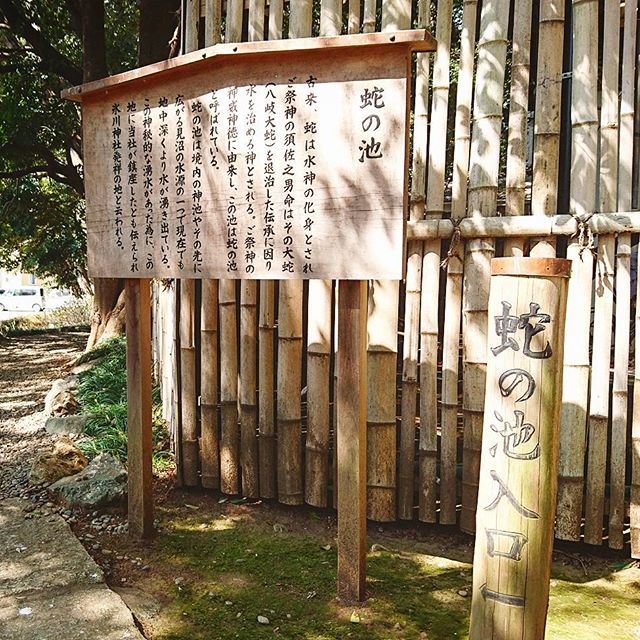 蛇の池
古来、蛇は水神の化身とされ
ご祭神の須佐之男命はその大蛇
（八岐大蛇）を退治した伝承に因り
水を治める神とされる。ご祭神の
御神徳に由来し、この池は蛇の池
と呼ばれている。
蛇の池は境内の神池やその先に
広がる見沼の水源の一つで現在でも
地中深くより水が湧き出ている。
この神秘的な湧水があった為に、この
地に当社が鎮座したとも伝えられ
氷川神社発祥の地と云われる。
蛇の池入口